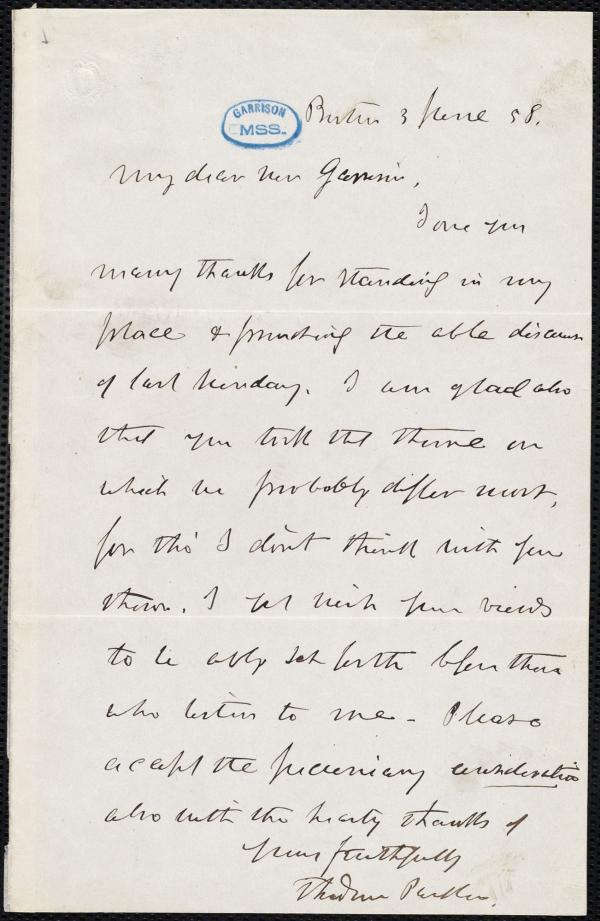 GARRISON
MSS.
Boston 3 June 58.
My dear Mr Garrison,
I owe you
many thanks for standing in my
place & preaching the able discourse
of last Sunday. I am glad also
that you took the theme on
which we probably differ most,
for tho' I don't think with you
there, I yet wish your views
to be ably set forth before those
who listen to me – Please
accept the pecuniary consideration
also with the hearty thanks of
Yours faithfully
Theodore Parker.